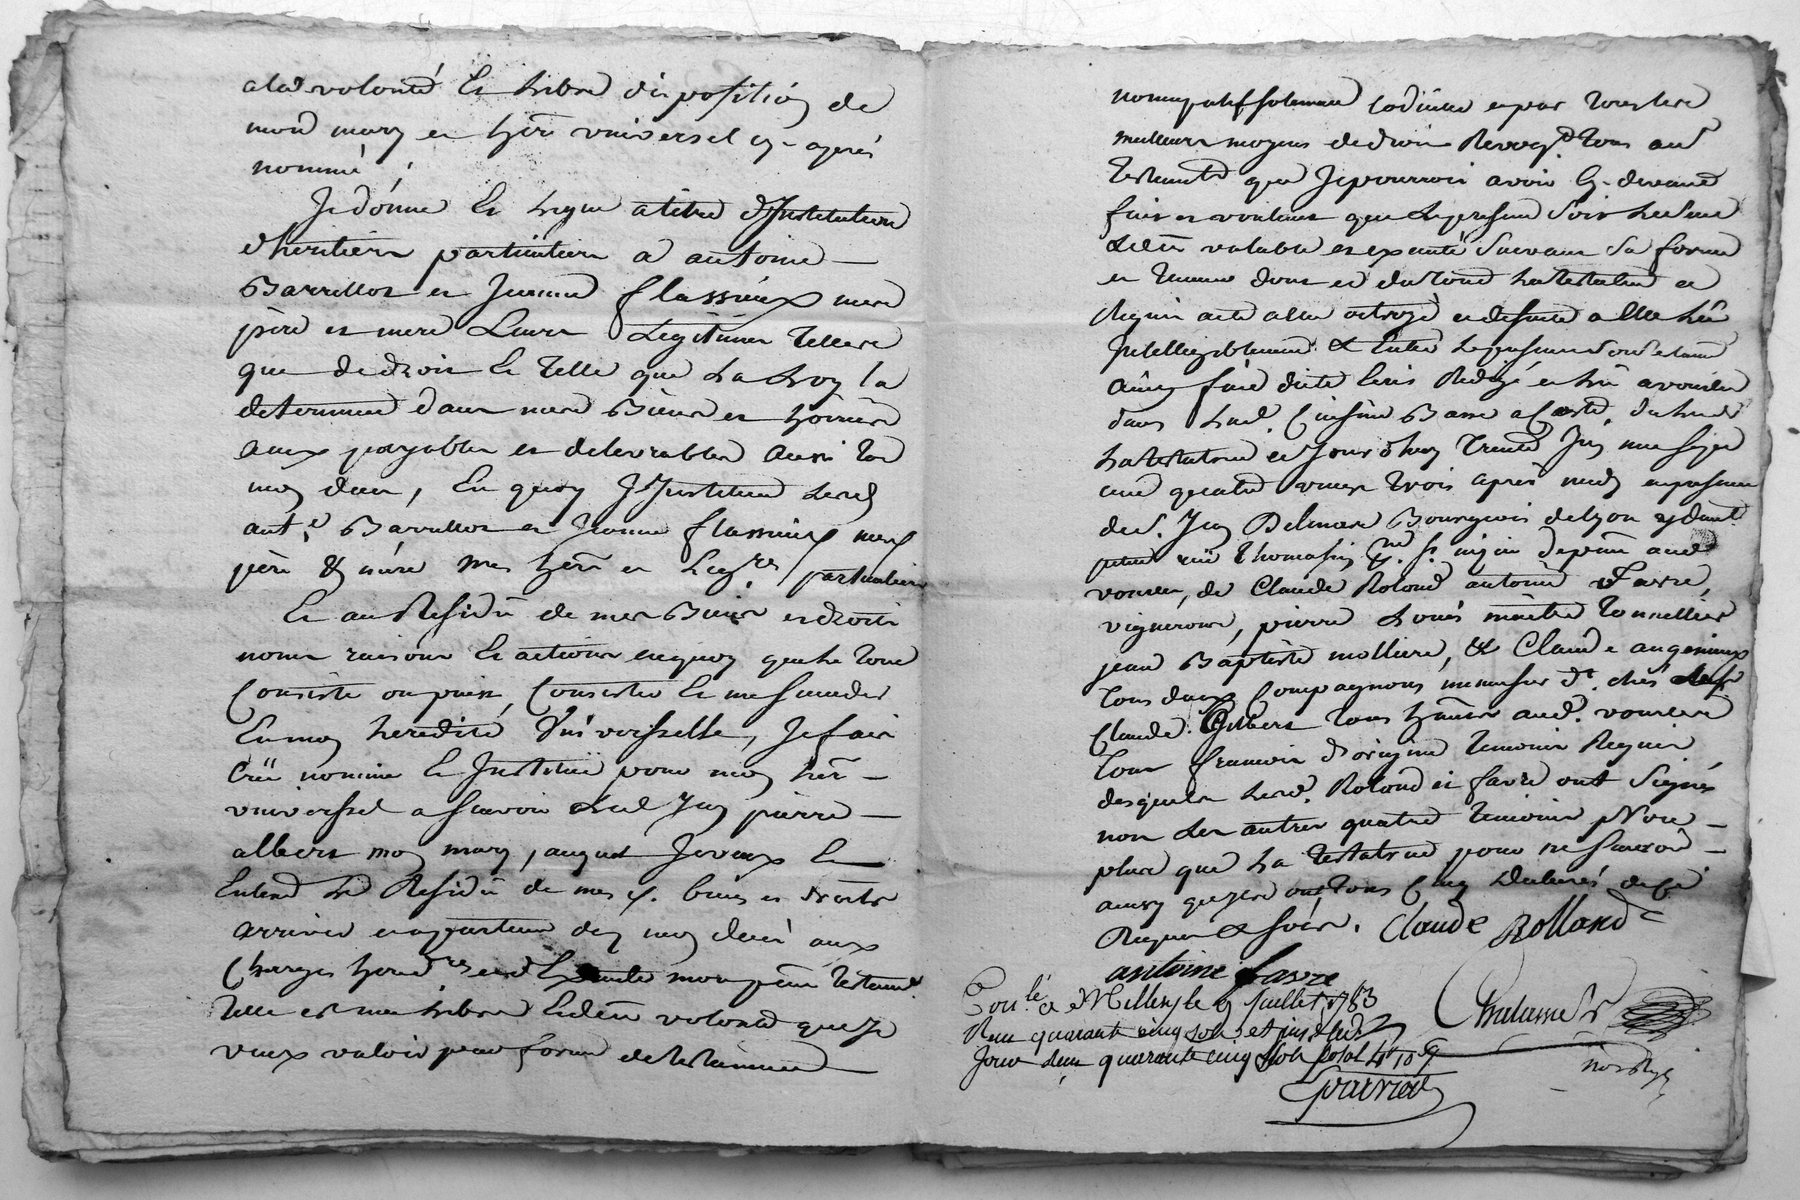 alad volonté et libre disposition de
mond mary et hérr universel cy-après
nommé ;
Je donne et legue a titre d'Institution
d'heritiers particuliers a antoine
Barrillot et Jeanne flassieux mes
père et mere Leurs Legitimes telles
que de droit et telle que la Loy la
determine dans mes Biens et hoiries
aux payables et delevrables aussitot
mon deces, En quoy J'Institue lesd
antе Barrillot et Jeanne flassieux mes
père & mère mes hérr et Legres particuliers
Et au Residü de mes Biens et droits
noms raisons et actions en quoy que le tout
Consiste ou puisse Consister et me succeder
En mon heredité Universselle, Je fais
Créé nomme et Institüe pour mon hérr
universsel a scavoir led Jn pierre
albert mon mary, auquel Je veux et
Entend le Residü de mes s. biens et droits
arriver et appartenir dez mon decès aux
Charges heredres et d'Executer mon pnt testamt
telle est ma libre et dere volonté que Je
veux valoir pour forme de testament
nomcupatif solemnel codicille et par tous les
meilleurs moyens de droit Revoqt tous aud
testaments que Je pourrois avoir cy-devant
faits et voulant que le present soit le seul
valable et executé suivant sa forme
et teneur dont et du tout la testatrice a
Requis acte a elle octroyé et desuite a elle lû
Intelligiblement & Entier le present
ainsy fait dicté Ecrit Redigé et lû a vourles
dans lad. Cuisine Basse a Costé du
la testatrice et Jourdhuy trente Juin mil sept
cent quatre vingt trois après midy en presence
de s. Jn Delmare Bourgeois de Lyon y demt
petite rüe thomassin psse st. nizier depnt aud
vourles, de Claude Roland antoine Favre,
vignerons, pierre Loüis maitre tonnellier
jean Baptiste molliere, & Claude angenieux
tous deux Compagnons menuisier dt. chés
Claude Gilbert tous hants aud. vourles
tous francois d'origine temoins Requis
desquels lesd. Roland et favre ont Signés
non les autres quatre temoins Non
plus que la testatrice pour ne scavoir
ainsy quyls ont tous Cinq declarés de ce
Requis & soüs. Claude Rolland
antoine favre
Conlé a Millery le 9 Juillet 1783
Reçu quarante cinq sols et
Jour Reçu quarante cinq sols total 4# 10s